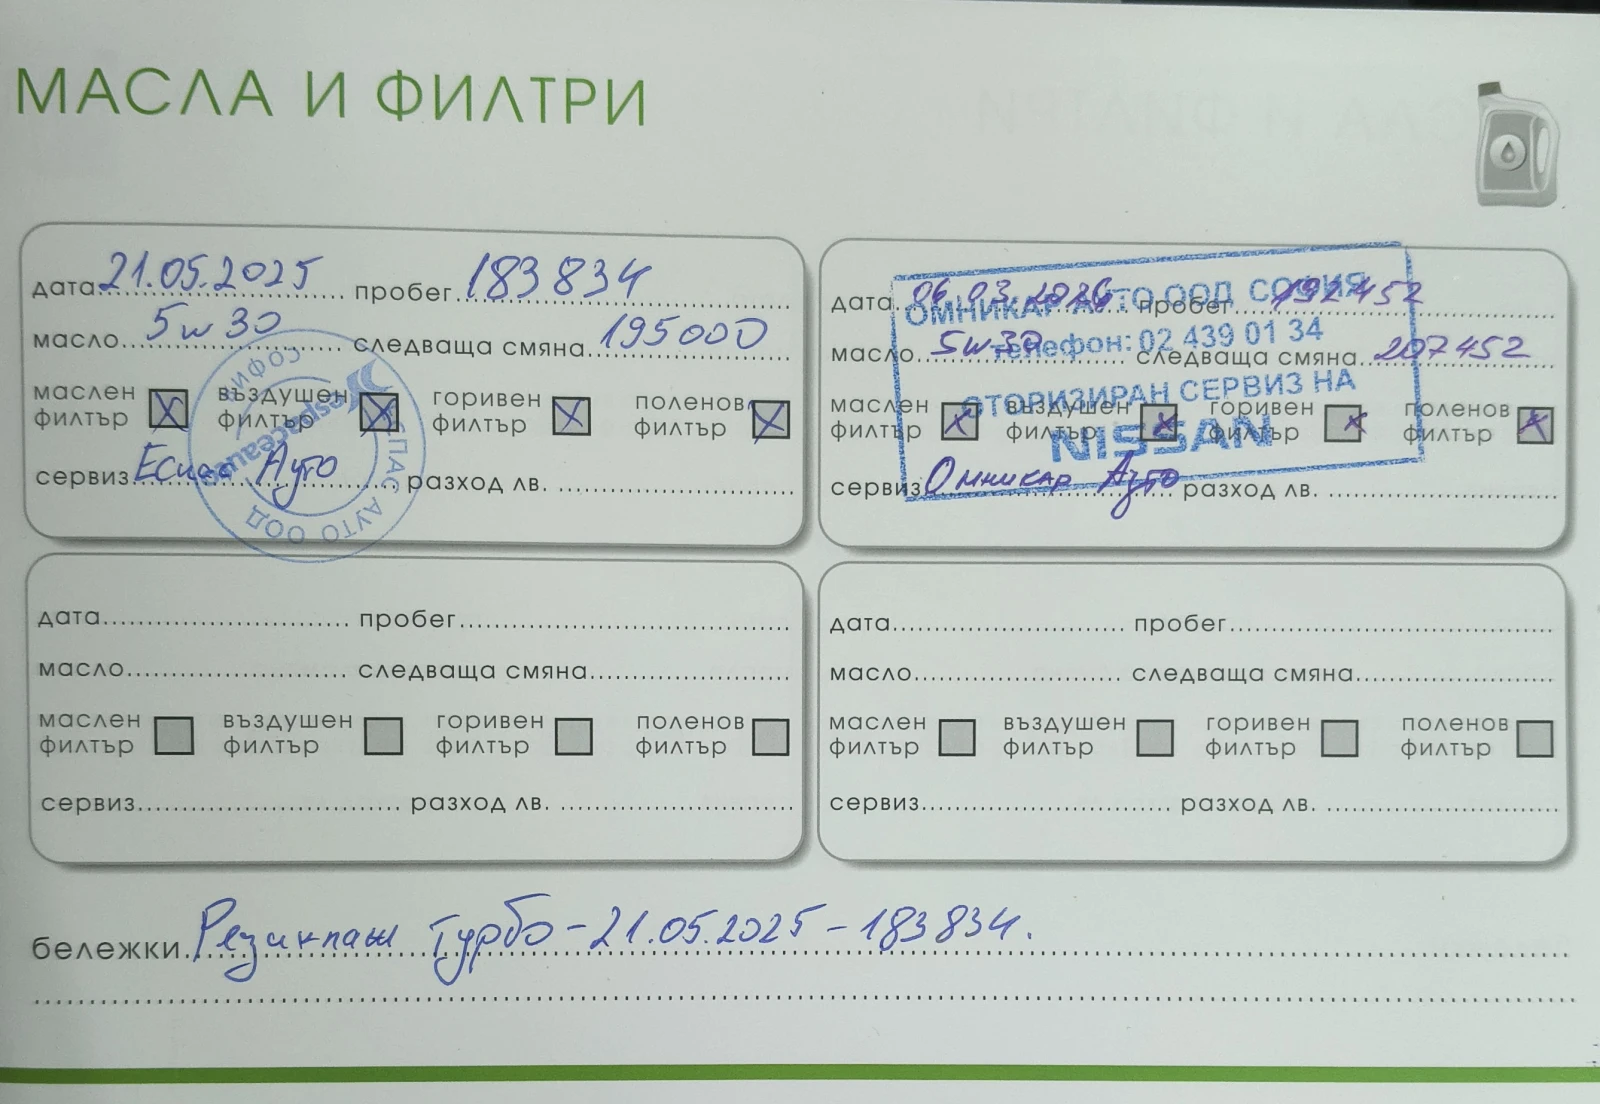 МАСЛА И ФИЛТРИ
дата 21.05.2025 пробег 183834
масло 5w30 следваща смяна 195000
маслен филтър въздушен филтър горивен филтър поленов филтър
сервиз Еспас Ауто разход лв.
СПАС АУТО ООД
СОФИЯ
дата 06.03.2026 пробег 192452
масло 5w30 следваща смяна 207452
маслен филтър въздушен филтър горивен филтър поленов филтър
сервиз Омникар Ауто разход лв.
ОМНИКАР АУТО ООД СОФИЯ
телефон: 02 439 01 34
ОТОРИЗИРАН СЕРВИЗ НА
NISSAN
дата пробег
масло следваща смяна
маслен филтър въздушен филтър горивен филтър поленов филтър
сервиз разход лв.
дата пробег
масло следваща смяна
маслен филтър въздушен филтър горивен филтър поленов филтър
сервиз разход лв.
бележки Турбо - 21.05.2025 - 183834.